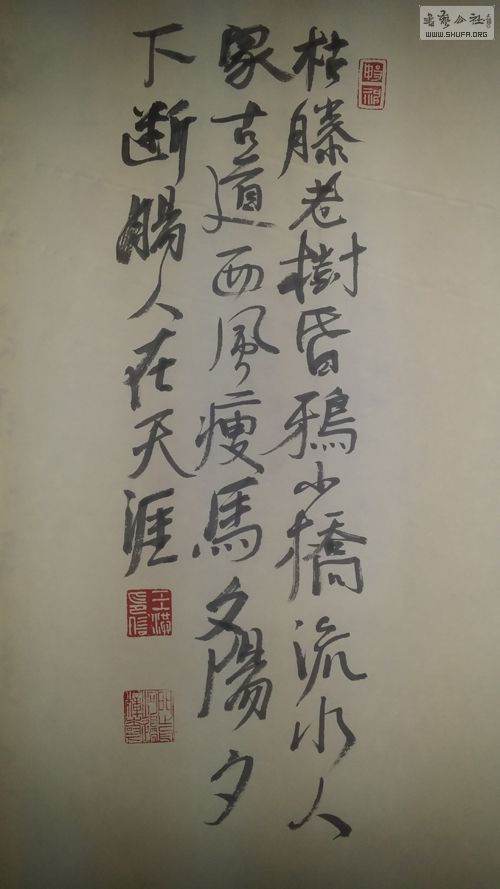 枯滕老樹昏鴉小橋流水人
家古道西風瘦馬夕陽夕
下断腸人在天涯
書藝公社
WWW.SHUFA.ORG